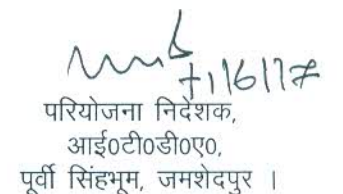 7/6/17
परियोजना निदेशक,
आई०टी०डी०ए०,
पूर्वी सिंहभूम, जमशेदपुर ।